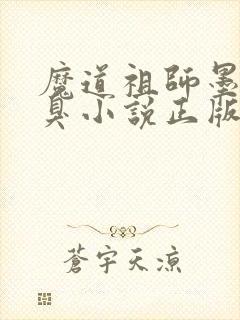 魔道祖師墨
臭小說正版
蒼宇天涼